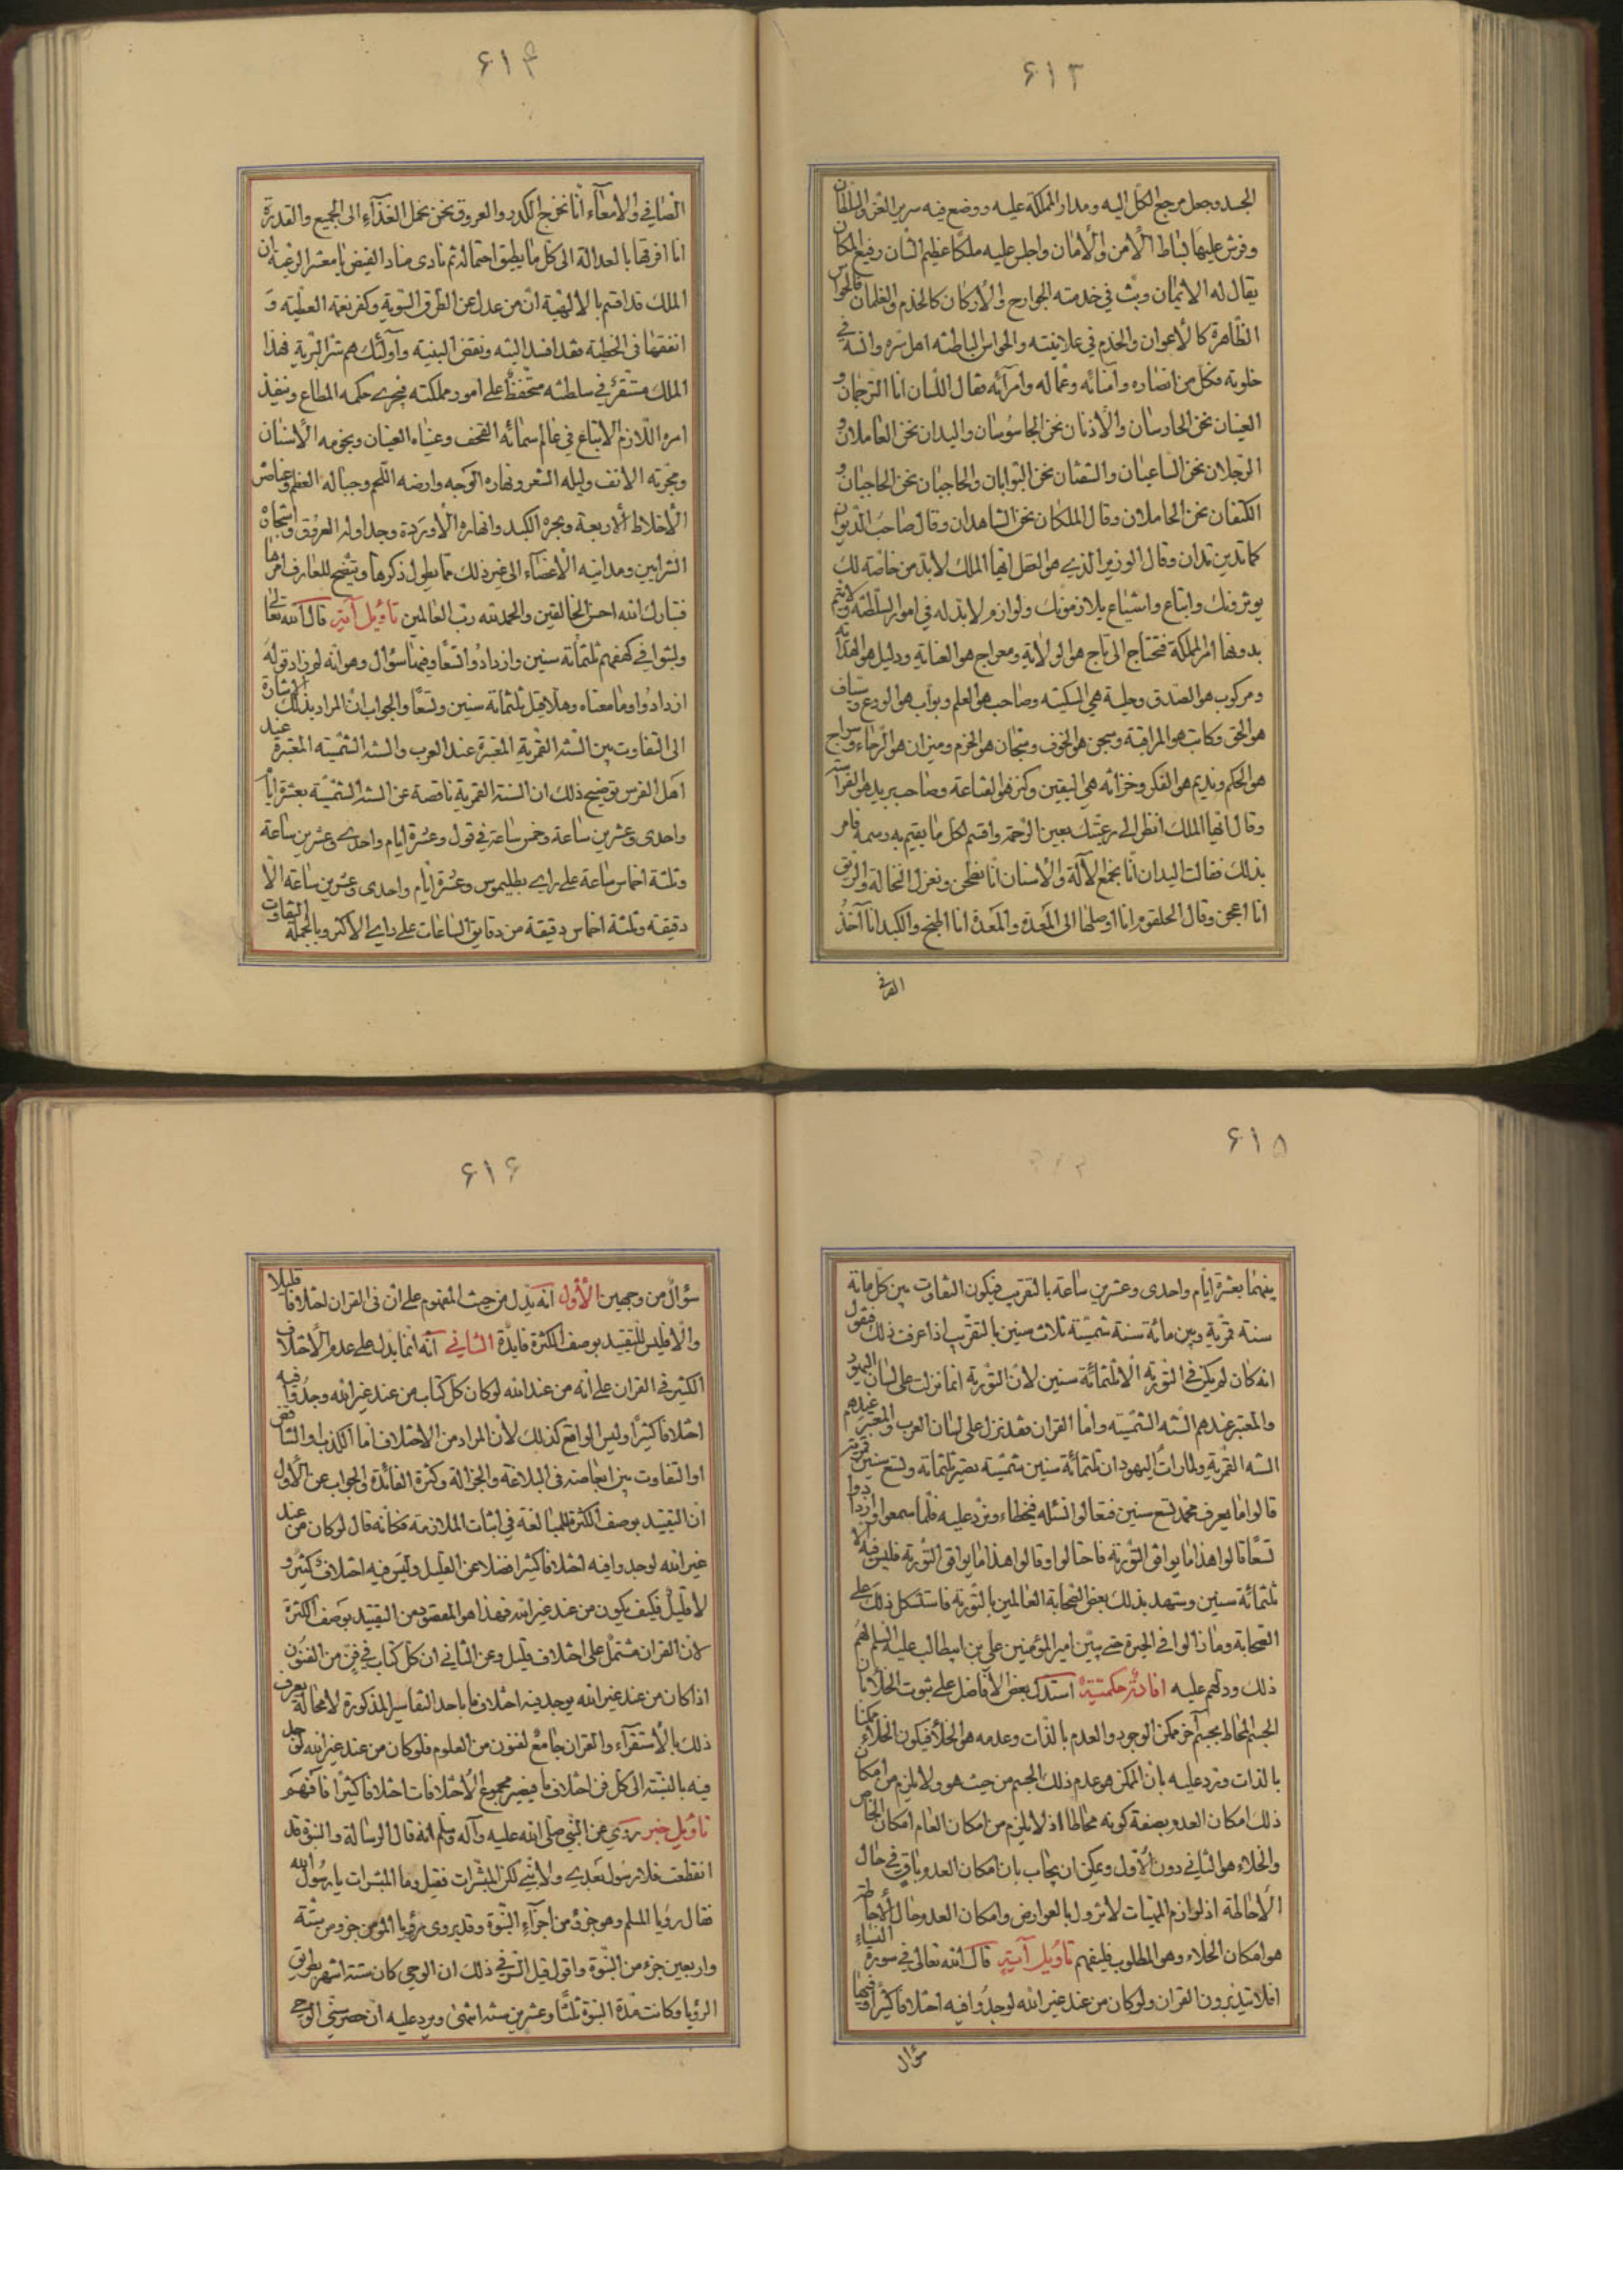 ۶۱۳
الجسد وجعل مرجع الكل اليه ومدار المملكة عليه ووضع فيه سرير العز والسلطان
وفرش عليها بساط الأمن والأمان واجلس عليه ملكا عظيم الشان رفيع المكان
يقال له الايمان وبث في خدمته الجوارح والأركان كالخدم والغلمان فالحواس
الظاهرة كالأعوان والخدم في علانيته والحواس الباطنه اهل سره وانسه في
خلوته فكل من انصاره وامنائه وعماله وامرآئه فقال اللسان انا الترجمان و
العينان نحن الحارسان والأذنان نحن الجاسوسان واليدان نحن العاملان و
الرجلان نحن الساعيان والشفتان نحن البوابان والحاجبان نحن الحاجبان و
الكتفان نحن الحاملان وقال الملكان نحن الشاهدان وقال صاحب الديوان
كما تدين تدان وقال الوزير الذي هو العقل ايها الملك لابد من خاصة لك
يوثرونك واتباع واشياع يلازمونك ولوازم لابد له في امور السلطنة ولا يتم
بدونها امر المملكة فتحتاج الى تاج هو الولاية ومعراج هو العناية ودليل هو الهداية
ومركوب هو الصدق وحلية هي السكينه وصاحب هو العلم وبواب هو الورع وسياف
هو الحق وكاتب هو المراقبة وسجن هو الخوف وسجان هو الحزم وميزان هو الرجاء وسراج
هو الحكم ونديم هو الفكر وخزانه هي اليقين وكنز هو القناعة وصاحب بريد هو الفراسة
وقال ايها الملك انظر الى رعيتك بعين الرحمة واقسم لكل ما يقيم به رسمه فامر
بذلك فقالت اليدان انا نجمع الآلة والأسنان انا نطحن ونعزل النخالة والريق
انا اعجن وقال الحلقوم انا اوصلها الى المعدة والمعدة انا اطبخ والكبد انا آخذ
۶۱۴
الصافي والأمعآء انا نخرج الكدر والعروق نحن نحمل الغذآء الى الجميع والقدرة
انا افرقها بالعدالة الى كل ما يطيق احتماله ثم نادى مناد الفيض يا معشر الرعية ان
الملك قد اقسم بالألهية ان من عدل عن الطرق السوية وكفر نعمه العطيه و
انفقها في الخطية فقد افسد البنيه ونقض البنية واولئك هم شر البرية فهذا
الملك مستقر في سلطنته متحفظ على امور مملكته يجري حكمه المطاع وينفذ
امره اللازم الاتباع في عالم سمائه القحف وعيناه العينان ونجومه الأسنان
ومجرته الانف وليله الشعر ونهاره الوجه وارضه اللحم وجباله العظم وعناصره
الأخلاط الأربعة وبحره الكبد وانهاره الأوردة وجداوله العروق واشجاره
الشرايين ومدانيه الأعضآء الى غير ذلك مما يطول ذكرها ويتضح للعارف امرها
فتبارك الله احسن الخالقين والحمد لله رب العالمين تاويل آية قال الله تعالى
ولبثوا في كهفهم ثلثمائة سنين وازدادوا تسعا وفيها سؤال وهو انه لم زاد قوله
ازدادوا وما معناه وهلا قيل ثلثمائة سنين وتسعا والجواب ان المراد بذلك الاشارة
الى التفاوت بين السنه القمرية المعتبرة عند العرب والسنه الشمسيه المعتبرة عند
اهل الفرس توضيح ذلك ان السنة القمرية ناقصة عن السنه الشمسيه بعشرة ايام
واحدى وعشرين ساعة وخمس ساعة في قول وعشرة ايام واحدى وعشرين ساعة
وثلثة اخماس ساعة على راي بطليموس وعشرة ايام واحدى وعشرين ساعة الا
دقيقة وثلثة اخماس دقيقة من دقايق الساعات على راي الأكثر وبالجملة التفاوت
۶۱۵
بينهما بعشرة ايام واحدى وعشرين ساعة بالتقريب فيكون التفاوت بين كل مائة
سنة قمرية وبين مائة سنة شمسيه ثلاث سنين بالتقريب اذا عرفت ذلك فنقول
انه كان لم يكن في التورية الا ثلثمائة سنين لأن التورية انما نزلت على لسان اليهود
والمعتبر عندهم السنه الشمسيه واما القران فقد نزل على لسان العرب والمعتبر عندهم
السنه القمرية ولما رات اليهود ان ثلثمائة سنين شمسيه تصير ثلثمائة وتسع سنين قمرية
قالوا ما يعرف محمد تسع سنين فتعالوا نسئله فيخطاء ونرد عليه فلما سمعوا وازدادوا
تسعا قالوا هذا ما يوافق التورية فاحتالوا وقالوا هذا ما يوافق التورية فليس فيه الا
ثلثمائة سنين وشهد بذلك بعض الصحابة العالمين بالتورية فاستشكل ذلك على
الصحابة وما زالوا في الحيرة حتى بين امير المؤمنين علي بن ابيطالب عليه السلم لهم
ذلك ودلهم عليه افادة حكمتية استدل بعض الأفاضل على ثبوت الخلآء بان
الجسم المحاط بجسم آخر ممكن الوجود والعدم بالذات وعدمه هو الخلآء فيكون الخلآء ممكنا
بالذات ونرد عليه بان الممكن هو عدم ذلك الجسم من حيث هو ولا يلزم من امكان
ذلك امكان العدم بصفة كونه محاطا اذ لا يلزم من امكان العام امكان الخاص
والخلاء هو الثاني دون الأول ويمكن ان يجاب بان امكان العدم باق في حال
الأحاطة اذ لوازم المهيات لا تزول بالعوارض وامكان العدم حال الأحاطة
هو امكان الخلاء وهو المطلوب فليفهم تاويل آية قال الله تعالى في سورة النساء
افلا يتدبرون القران ولو كان من عند غير الله لوجدوا فيه اختلافا كثيرا وفيها
سؤال
۶۱۶
سؤال من وجهين الأول انه يدل من حيث المفهوم على ان في القران اختلافا قليلا
والا فليس للتقييد بوصف الكثرة فايدة الثاني انه انما يدل على عدم الأختلاف
الكثير في القران على انه من عند الله لو كان كل كتاب من عند غير الله وجد فيه
اختلافا كثيرا وليس الواقع كذلك لأن المراد من الاختلاف اما الكذب او التناقض
او التفاوت بين ابعاضه في البلاغة والجزالة وكثرة الفائدة والجواب عن الأول
ان التقييد بوصف الكثرة للمبالغة في اثبات الملازمة فكانه قال لو كان من عند
غير الله لوجدوا فيه اختلافا كثيرا فضلا عن القليل وليس فيه اختلاف كثير و
لا قليل فكيف يكون من عند غير الله فهذا هو المقصود من التقييد بوصف الكثرة
لا ان القران مشتمل على اختلاف قليل وعن الثاني ان كل كتاب في فن من الفنون
اذا كان من عند غير الله يوجد فيه اختلاف ما باحد التفاسير المذكورة لا محالة يعرف
ذلك بالأستقرآء والقران جامع لفنون من العلوم فلو كان من عند غير الله لوجد
فيه بالنسبة الى كل فن اختلاف ما فيصير مجموع الأختلافات اختلافا كثيرا فافهم
تاويل خبر روي عن النبي صلى الله عليه وآله وسلم انه قال الرسالة والنبوة قد
انقطعت فلا رسول بعدي ولا نبي لكن المبشرات فقيل وما المبشرات يا رسول الله
فقال رؤيا المسلم وهو جزؤ من اجزآء النبوة وقد يروى رؤيا المؤمن جزؤ من ستة
واربعين جزء من النبوة واقول قيل السر في ذلك ان الوحي كان ستة اشهر بطريق
الرؤيا وكانت مدة النبوة ثلثا وعشرين سنه انتهى ويرد عليه ان حصر سني الوحي